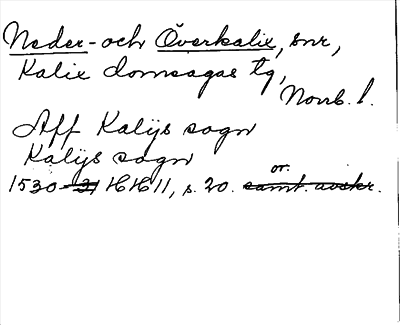 Neder- och Överkalix, snr,
Kalix domsagas tg,
Norrb. l.
Aff Kalijs sogn
Kalijs sogn
or.
1530-31 HH 11, s. 20. samt. avskr.